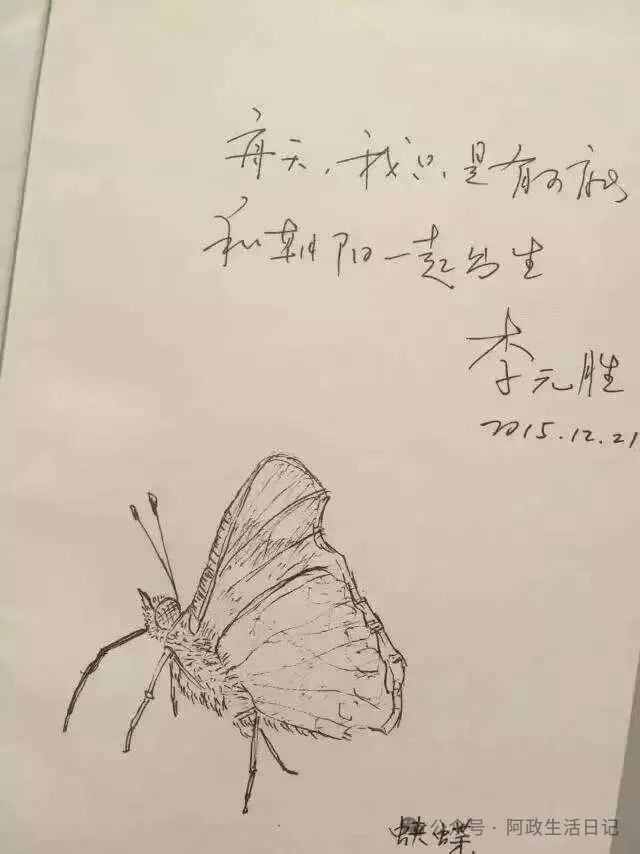 每天，我只是有可能
和朝阳一起出生
李元胜
2015.12.21
蝴蝶
公众号·阿政生活日记